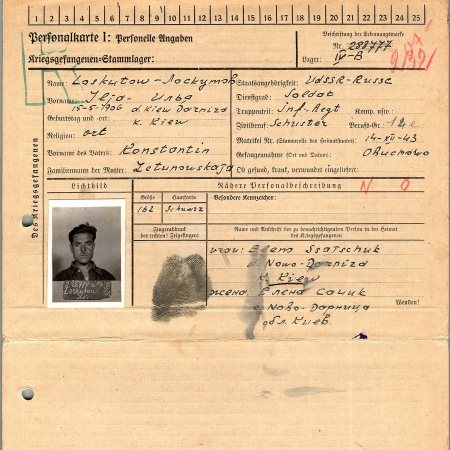 1 2 3 4 5 6 7 8 9 10 11 12 13 14 15 16 17 18 19 20 21 22 23 24 25
Personalkarte I: Personelle Angaben
Kriegsgefangenen=Stammlager:
Beschriftung der Erkennungsmarke
Nr. 288777
Lager: IV-B
Des Kriegsgefangenen
Name: Loskutow-Лоскутов
Vorname: Ilja- Илья
Geburtstag und -ort: 15-5-1906 d. Kiew Darniza
k. Kiew
Religion: ort
Vorname des Vaters: Konstantin
Familienname der Mutter: Zetunowskaja
Staatsangehörigkeit: UdSSR-Russe
Dienstgrad: Soldat
Truppenteil: Inf-Regt Komp. usw.:
Zivilberuf: Schuster Berufs-Gr.: 12c
Matrikel Nr. (Stammrolle des Heimatstaates):
Gefangennahme (Ort und Datum): 14-XII-43
Obuchowo
Ob gesund, krank, verwundet eingeliefert:
Lichtbild
Nähere Personalbeschreibung
Größe
Haarfarbe
Besondere Kennzeichen:
162
Schwarz
Fingerabdruck
des rechten! Zeigefingers
Name und Anschrift der zu benachrichtigenden Person in der Heimat
des Kriegsgefangenen
Frau: Elena Ssatschuk
d. Nowo-Darniza
k. Kiew
жена: Елена Сачук
с Ново-Дарница
обл. Киев.
Wenden!